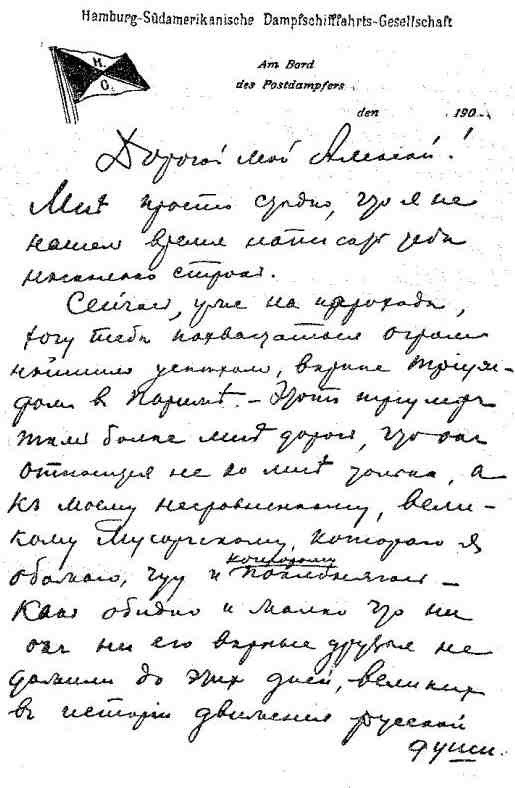 Hamburg-Südamerikanische Dampfschifffahrts-Gesellschaft
H.
G.
Am Bord
des Postdampfers
den 190
Дорогой мой Алексей!
Мнѣ просто стыдно, что я не
нашел время написать тебѣ
несколько строк.
Сейчас, уже на пароходѣ,
хочу тебѣ похвастаться огром
нѣйшим успехом, вернее триум-
фом в Парижѣ. – Этот триумфъ
тѣм более мнѣ дорог, что он
относится не ко мнѣ только, а
къ моему несравненному, вели-
кому Мусоргскому, которого я
обожаю, чту и которому поклоняюсь –
Как обидно и жалко что ни
онъ ни его верные друзья не
дожили до этих дней, великих
въ исторiи движенiя русской
души.